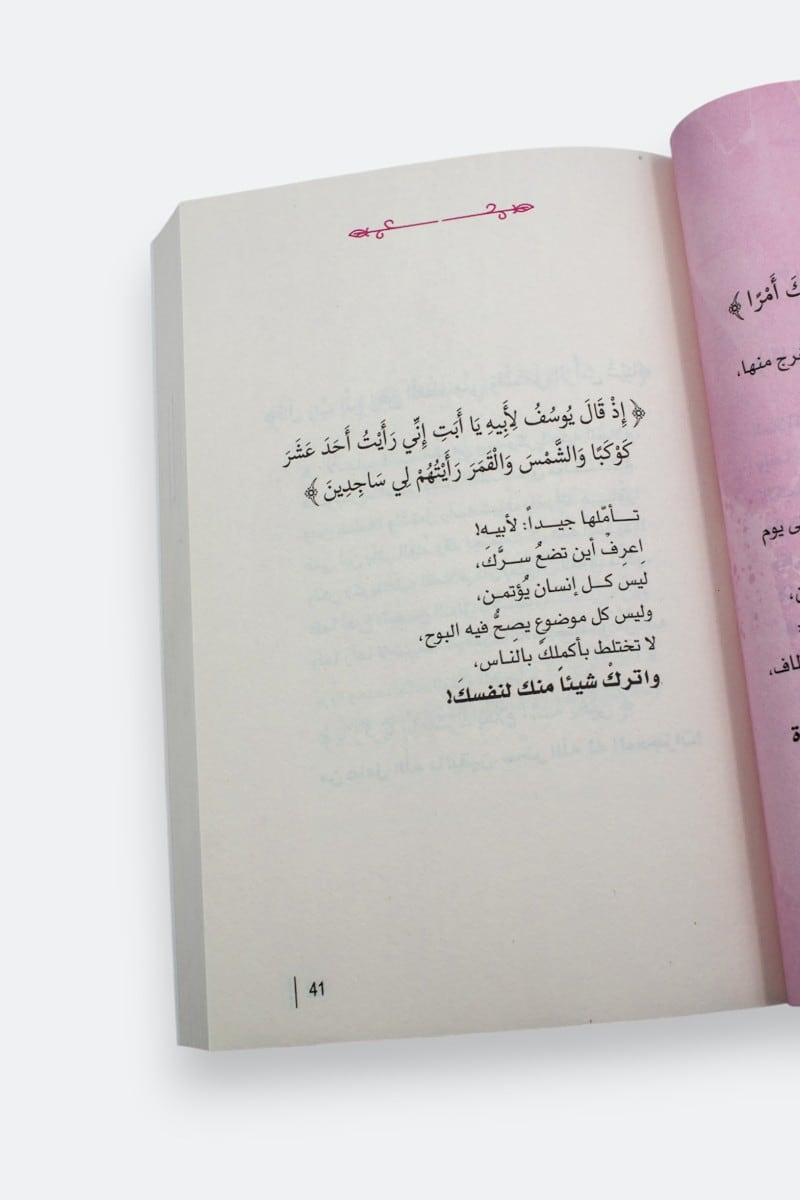 ﴿ إِذْ قَالَ يُوسُفُ لِأَبِيهِ يَا أَبَتِ إِنِّي رَأَيْتُ أَحَدَ عَشَرَ
كَوْكَبًا وَالشَّمْسَ وَالْقَمَرَ رَأَيْتُهُمْ لِي سَاجِدِينَ ﴾
تـــأمّلها جيــداً: لأبيــه!
اِعرِفْ أين تضعُ ســرَّكَ،
ليس كــل إنسان يُؤتمــن،
وليس كل موضوعٍ يصِحُّ فيه البوح،
لا تختلط بأكملكَ بالناس،
واتركْ شيئاً منك لنفسكَ!
41
كَ أَمْرًا ﴾
منها،
يوم